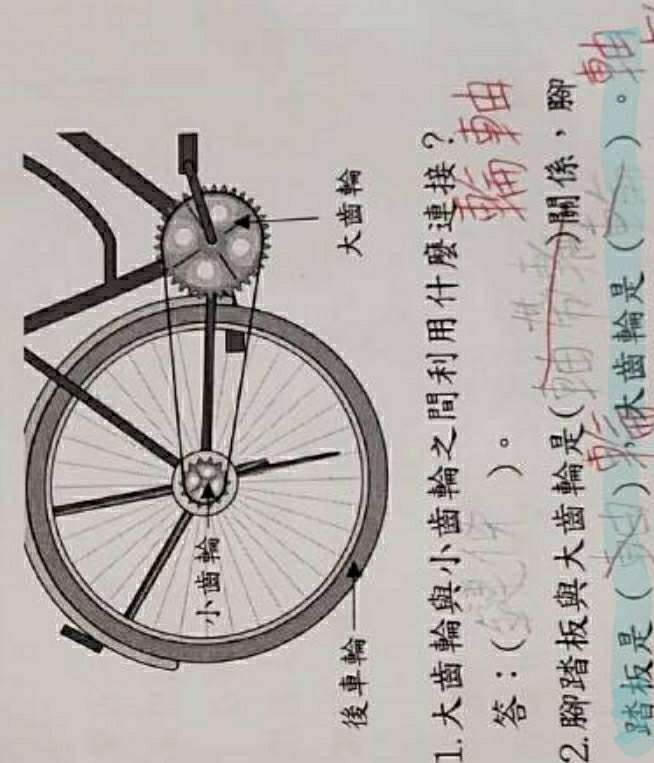 大齒輪
小齒輪
後車輪
1.大齒輪與小齒輪之間利用什麼連接？
答：(鏈條)。
輪軸
2.腳踏板與大齒輪是()關係，腳
踏板是(軸)，大齒輪是()。
輪
軸